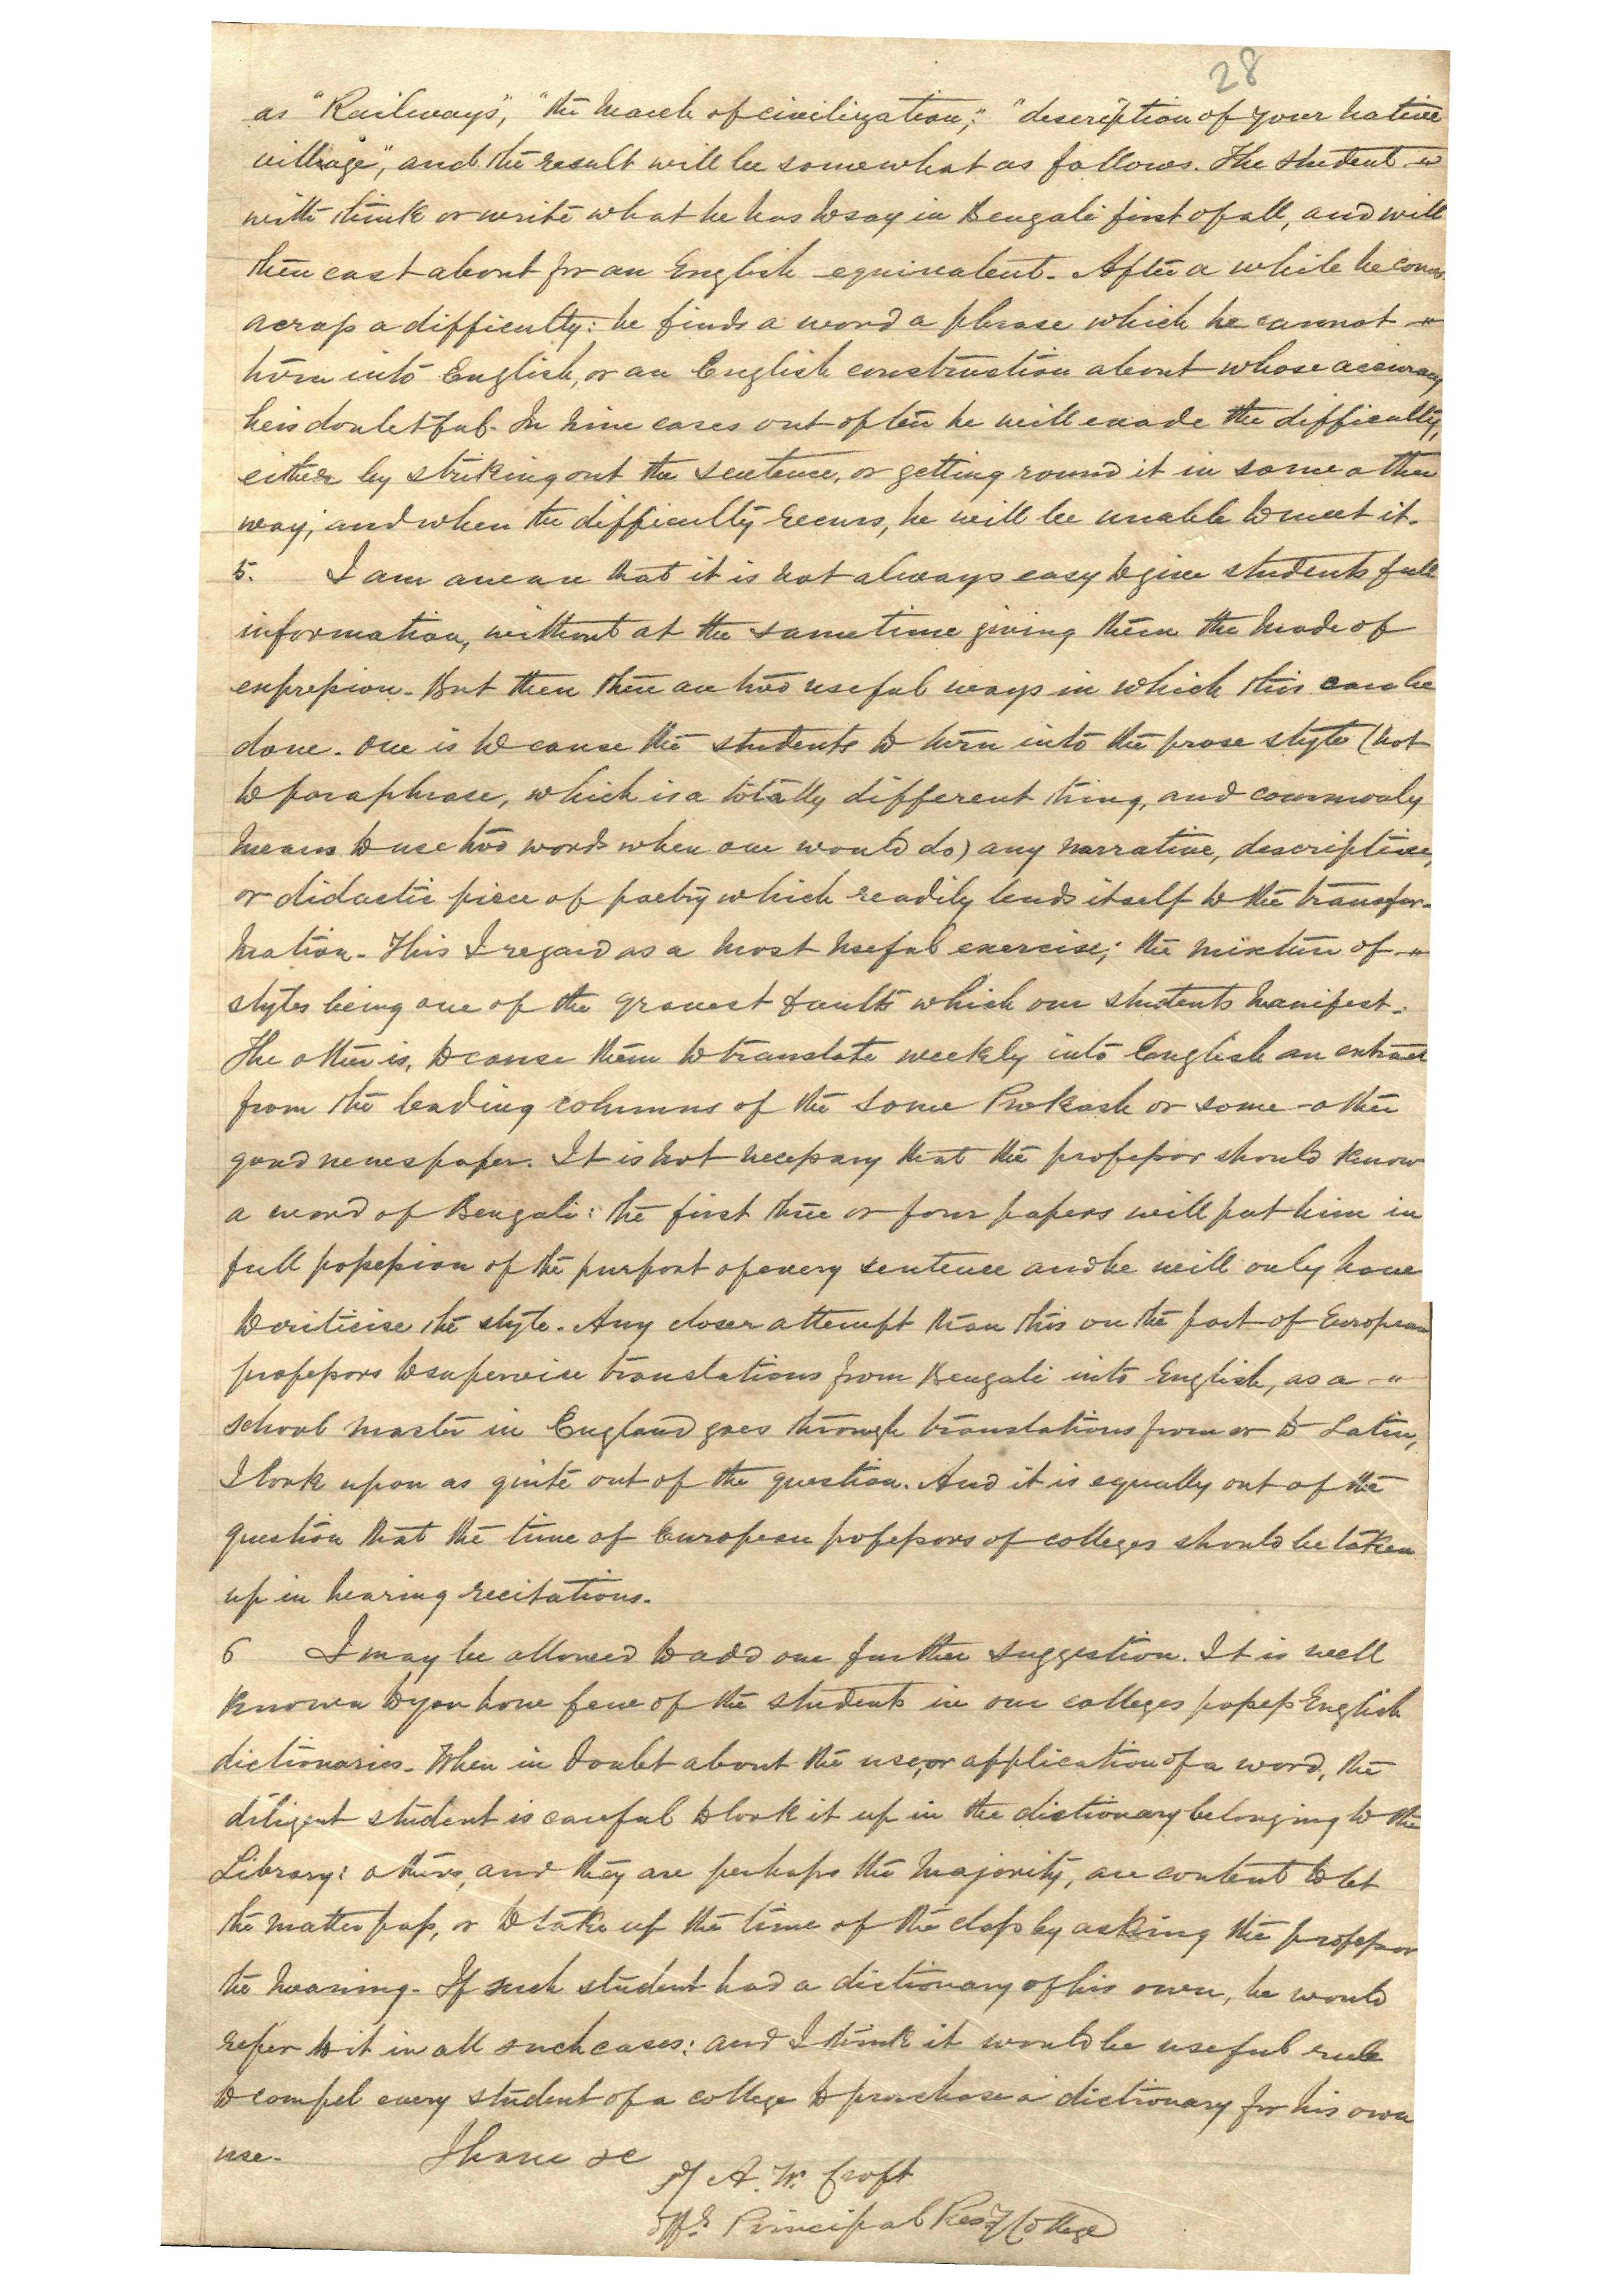 28
as "Railways", "the March of civilization," "description of your native
village", and the result will be somewhat as follows. The student
will think or write what he has to say in Bengali first of all, and will
then cast about for an English equivalent. After a while he comes
across a difficulty: he finds a word a phrase which he cannot
turn into English, or an English construction about whose accuracy
he is doubtful. In nine cases out of ten he will evade the difficulty,
either by striking out the sentence, or getting round it in some other
way; and when the difficulty recurs, he will be unable to meet it.
5. I am aware that it is not always easy to give students full
information, without at the same time giving them the mode of
expression. But then there are two useful ways in which this can be
done. One is to cause the students to turn into the prose style (not
to paraphrase, which is a totally different thing, and commonly
means to use two words when one would do) any narrative, descriptive,
or didactic piece of poetry which readily lends itself to the transfor-
mation. This I regard as a most useful exercise; the mixture of
styles being one of the gravest faults which our students manifest.
The other is, to cause them to translate weekly into English an extract
from the leading columns of the Some Prokash or some other
good newspaper. It is not necessary that the professor should know
a word of Bengali: the first three or four papers will put him in
full possession of the purport of every sentence and he will only have
to criticise the style. Any closer attempt than this on the part of European
professors to supervise translations from Bengali into English, as a
school master in England goes through translations from or to Latin,
I look upon as quite out of the question. And it is equally out of the
question that the time of European pofessors of colleges should be taken
up in hearing recitations.
6 I may be allowed to add one further suggestion. It is well
known to you how few of the students in our colleges possess English
dictionaries. When in doubt about the use, or application of a word, the
diligent student is careful to look it up in the dictionary belonging to the
Library: others, and they are perhaps the majority, are content to let
the matter pass, or to take up the time of the class by asking the professor
the meaning. If such student had a dictionary of his own, he would
refer to it in all such cases: and I think it would be useful rule
to compel every student of a college to purchase a dictionary for his own
use. I have &c
Sd/ A. W. Croft
Offg. Principal Presy College